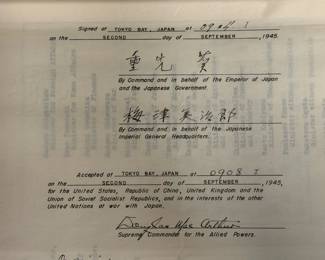 Signed at TOKYO BAY, JAPAN at 0904 I
on the SECOND day of SEPTEMBER, 1945.
重光葵
By Command and in behalf of the Emperor of Japan
and the Japanese Government.
梅津美治郎
By Command and in behalf of the Japanese
Imperial General Headquarters.
Accepted at TOKYO BAY, JAPAN at 0908 I
on the SECOND day of SEPTEMBER, 1945,
for the United States, Republic of China, United Kingdom and the
Union of Soviet Socialist Republics, and in the interests of the other
United Nations at war with Japan.
Douglas MacArthur
Supreme Commander for the Allied Powers.